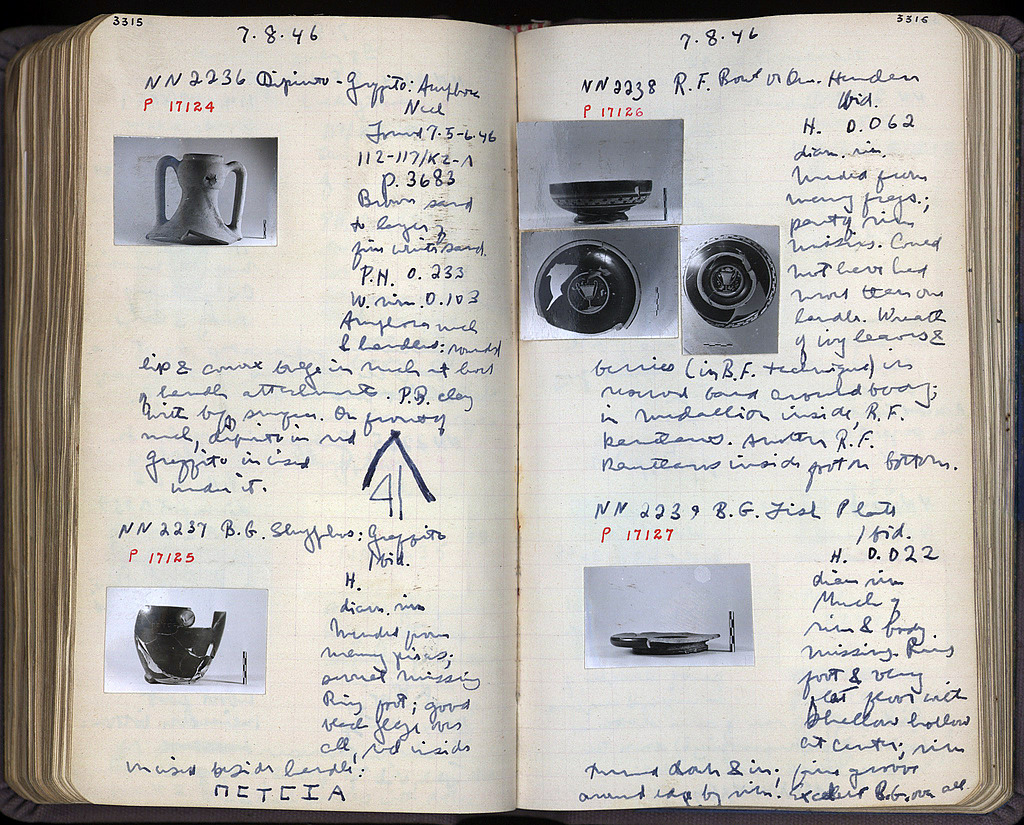 3315
7.8.46
NN 2236 Dipinto - Graffito: Amphora
Neck
P 17124
Found 7.5-6.46
112-117/ΚΖ-Λ
p. 3683
Brown sand
to layer of
fine white sand.
P.H. 0.233
W. rim 0.103
Amphora neck
& handles: rounded
lip & convex bulge in neck at
handle attachment. P.B. clay
with
neck, dipinto in red
graffito incised
under it.
NN 2237 B.G. Skyphos: Graffito
P 17125
Ibid.
H.
diam. rim
Mended from
many pieces;
missing
Ring foot; good
black glaze over
all, red inside
incised beside handle:
ΠΕΤΕΙΑ
3316
7.8.46
NN 2238 R.F. Bowl or One-Handler
P 17126
Ibid.
H. 0.062
diam. rim.
Mended from
many frags.;
part of rim
missing. Could
not have had
more than one
handle. Wreath
of ivy leaves &
berries (in B.F. technique) in
reserved band around body;
in medallion inside, R.F.
kantharos. Another R.F.
kantharos inside foot on bottom.
NN 2239 B.G. Fish Plate
P 17127
Ibid.
H. 0.022
diam rim
Much of
rim & body
missing. Ring
foot & very
flat floor with
shallow hollow
at center; rim
turned down & in; fine groove
around edge by rim. Excellent B.G. over all.